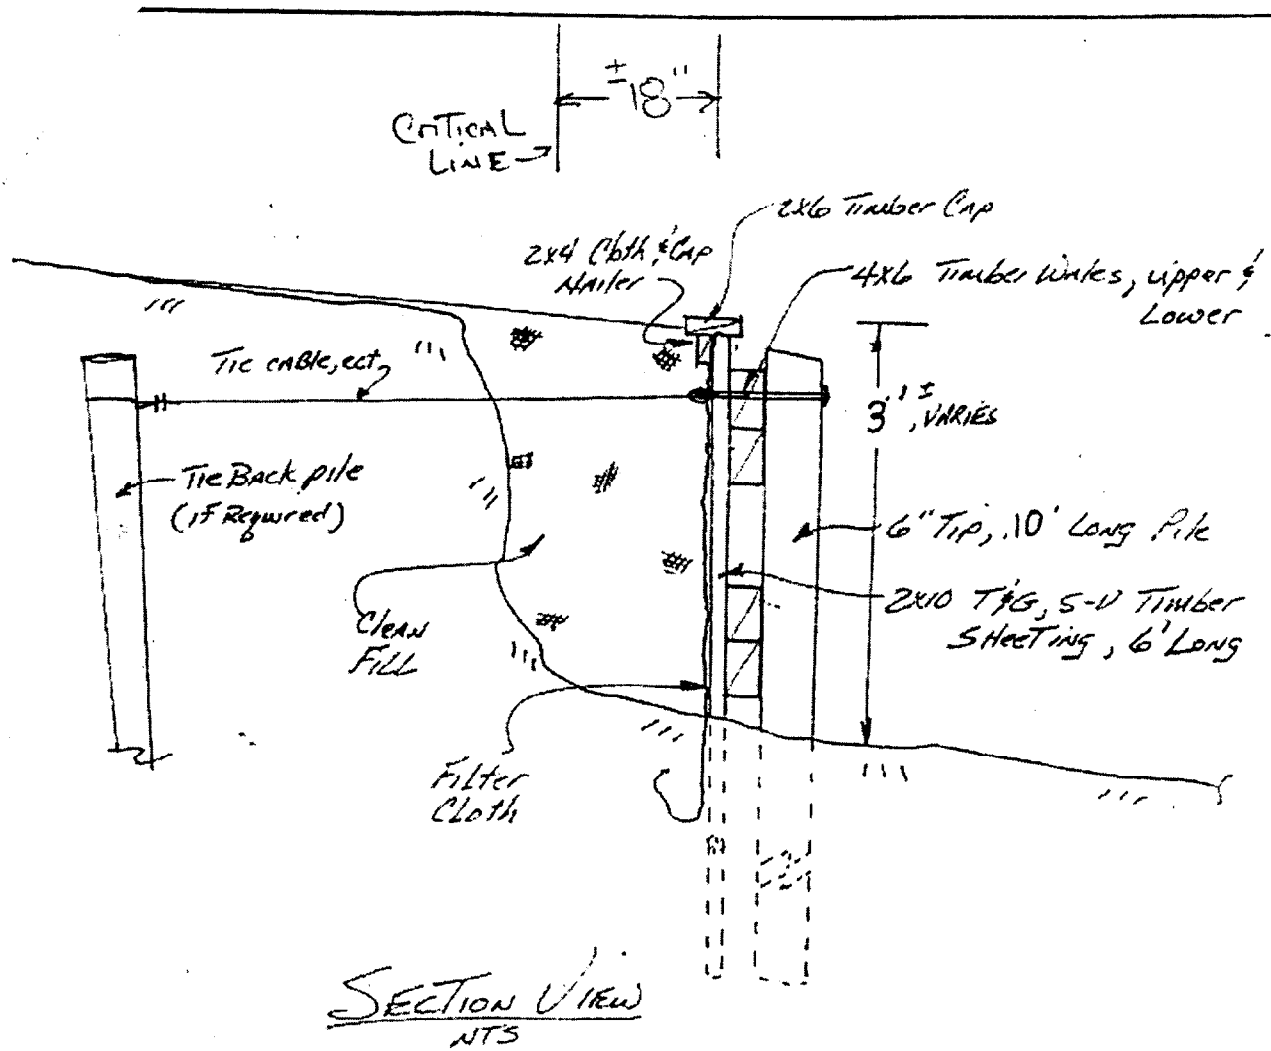 ± 18"
CRITICAL
LINE
2x6 Timber Cap
2x4 Cloth & Cap
Nailer
4x6 Timber Wales, upper &
Lower
Tie cable, ect.
3'±, VARIES
Tie Back pile
(if Required)
6" Tip, 10' Long Pile
2x10 T&G, S-V Timber
Sheeting, 6' Long
Clean
Fill
Filter
Cloth
SECTION VIEW
NTS